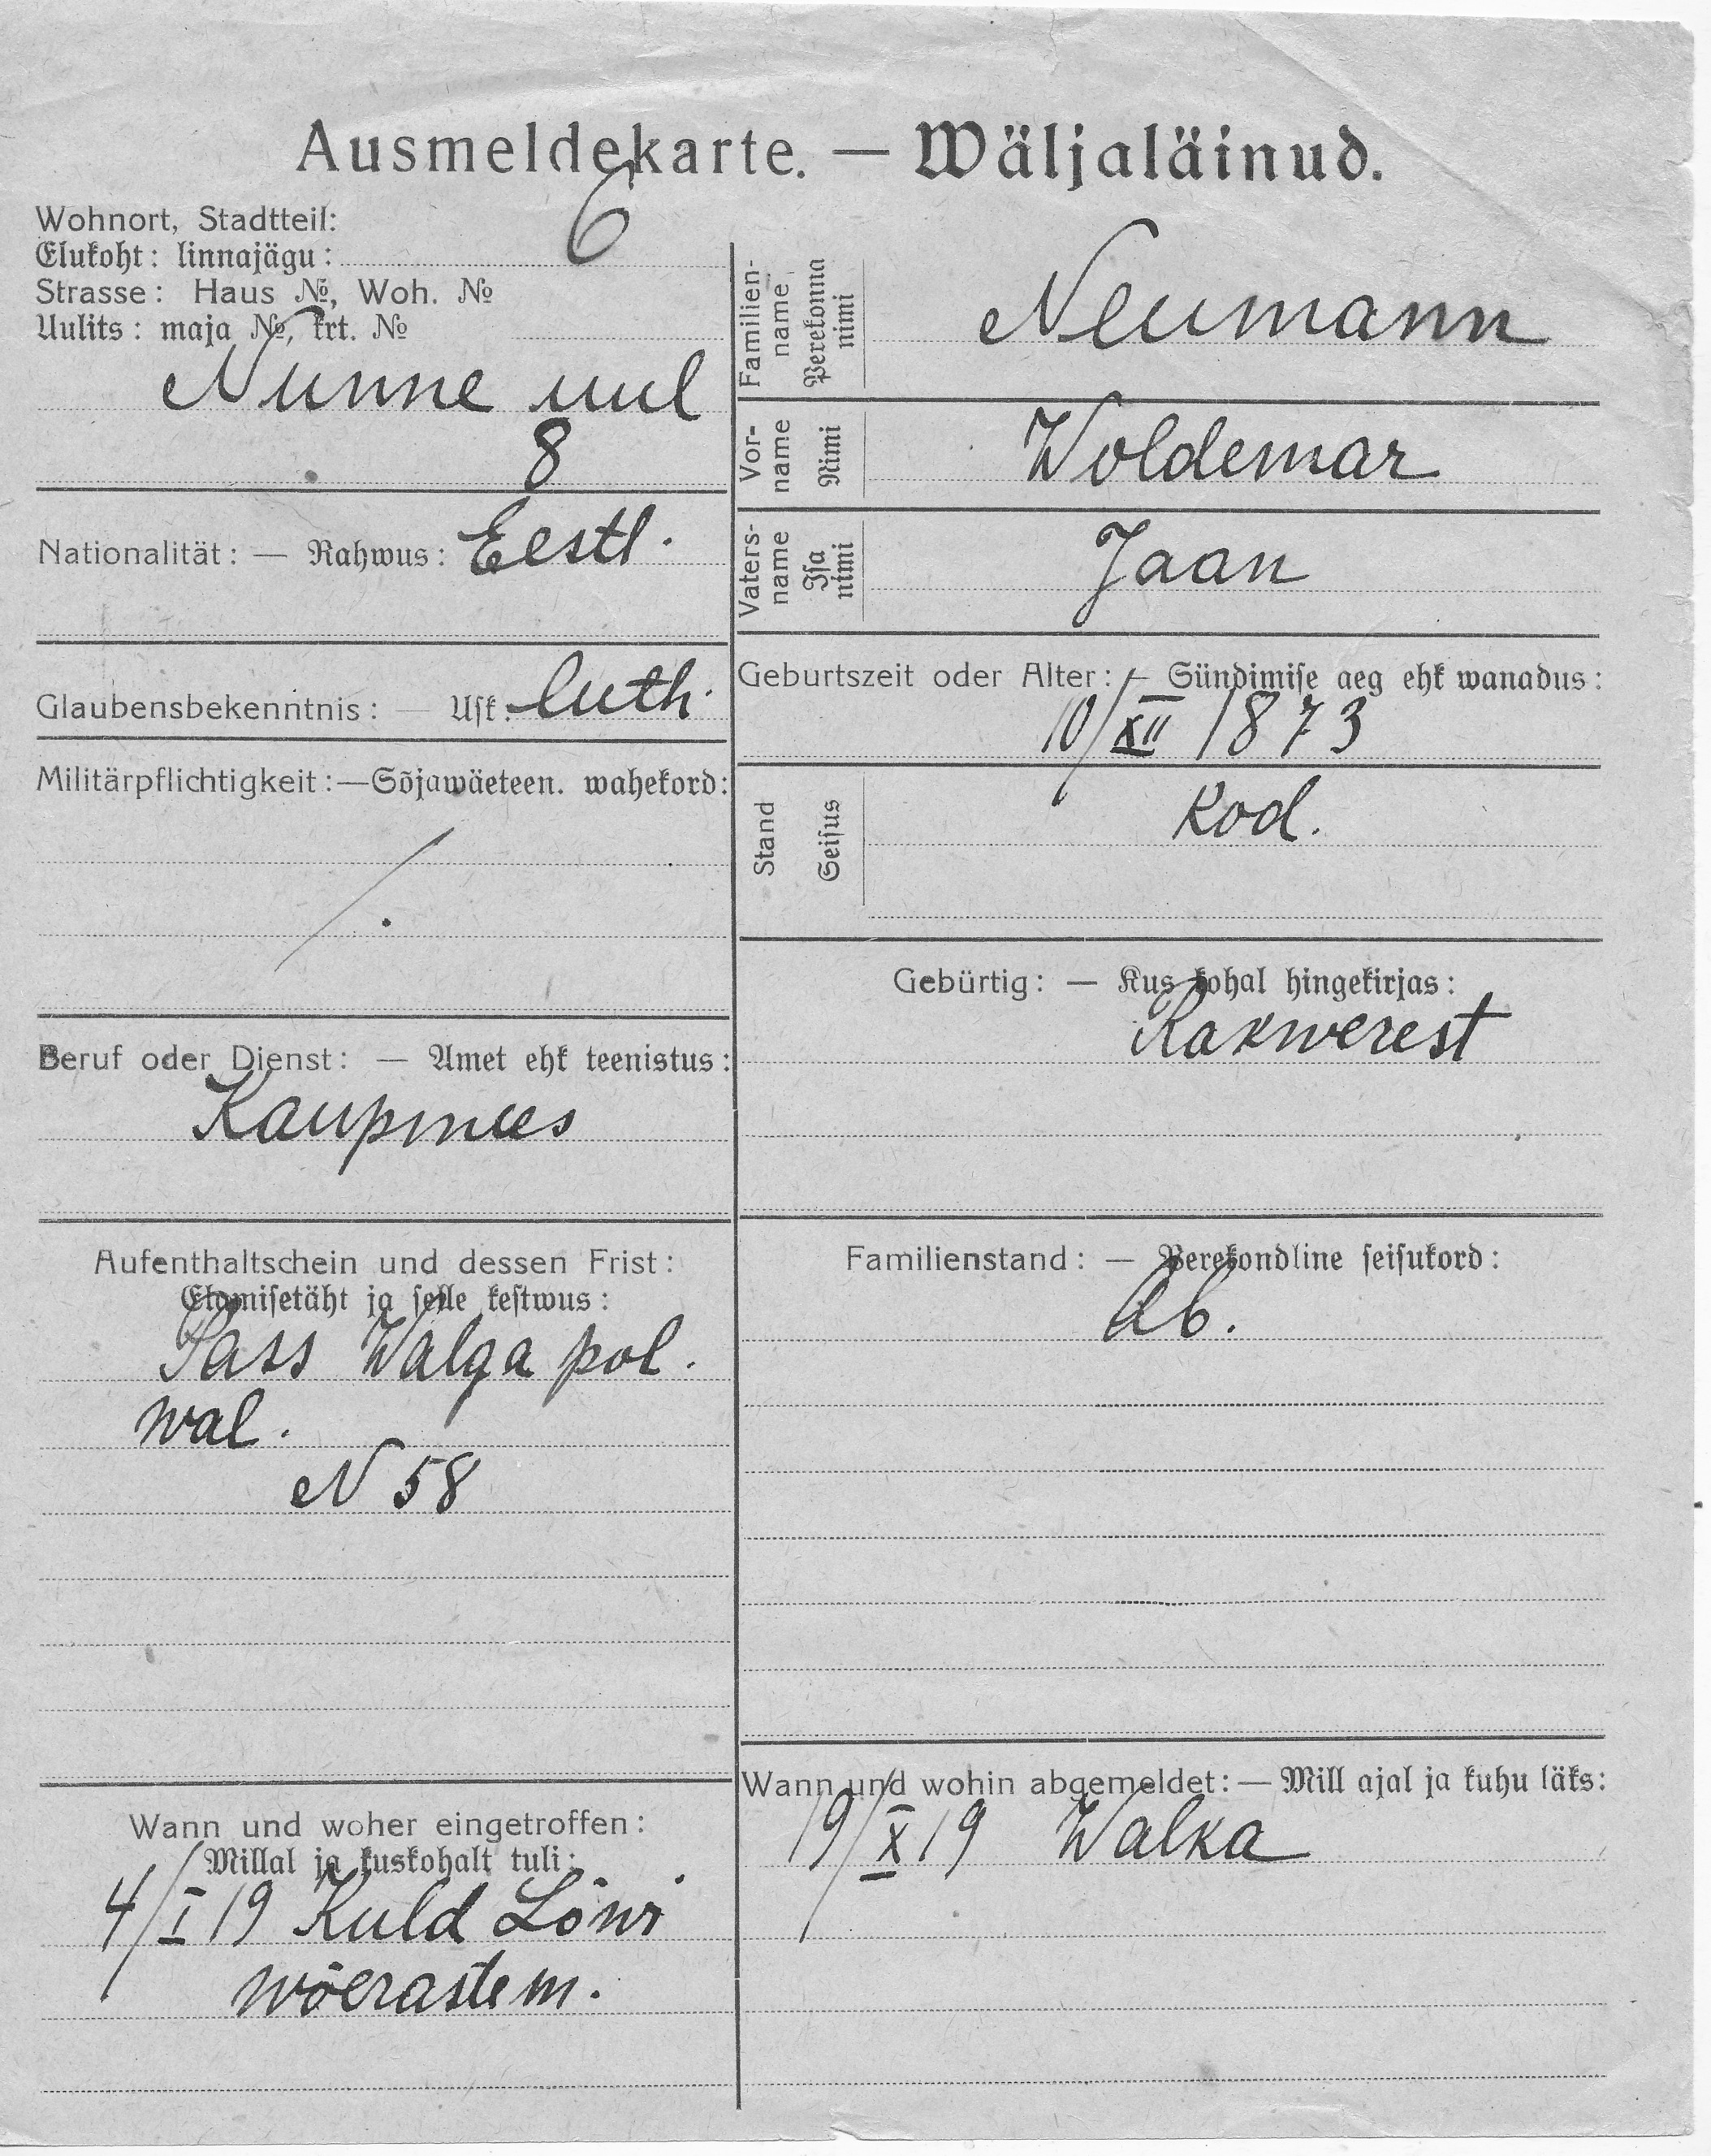 Ausmeldekarte. — Wäljaläinud.
Wohnort, Stadtteil:
Elukoht: linnajägu: 6
Strasse: Haus №, Woh. №
Uulits: maja №, krt. №
Nunne uul
8
Nationalität: — Rahwus: Eestl.
Glaubensbekenntnis: — Usk: luth.
Militärpflichtigkeit: — Sõjawäeteen. wahekord:
Beruf oder Dienst: — Amet ehk teenistus:
Kaupmees
Aufenthaltschein und dessen Frist:
Elamisetäht ja selle kestwus:
Pass Walga pol.
wal.
N 58
Wann und woher eingetroffen:
Millal ja kuskohalt tuli:
4/I 19 Kuld Lõwi
wõerastem.
Familien-
name
Perekonna
nimi
Neumann
Vor-
name
Nimi
Woldemar
Vaters-
name
Isa
nimi
Jaan
Geburtszeit oder Alter: — Sündimise aeg ehk wanadus:
10/XII 1873
Stand
Seisus
Kod.
Gebürtig: — Kus kohal hingekirjas:
Rakwerest
Familienstand: — Perekondline seisukord:
Ab.
Wann und wohin abgemeldet: — Mill ajal ja kuhu läks:
19/X 19 Walka